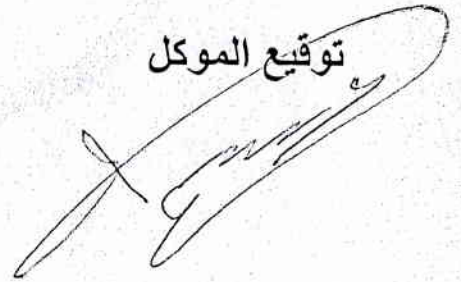 توقيع الموكل